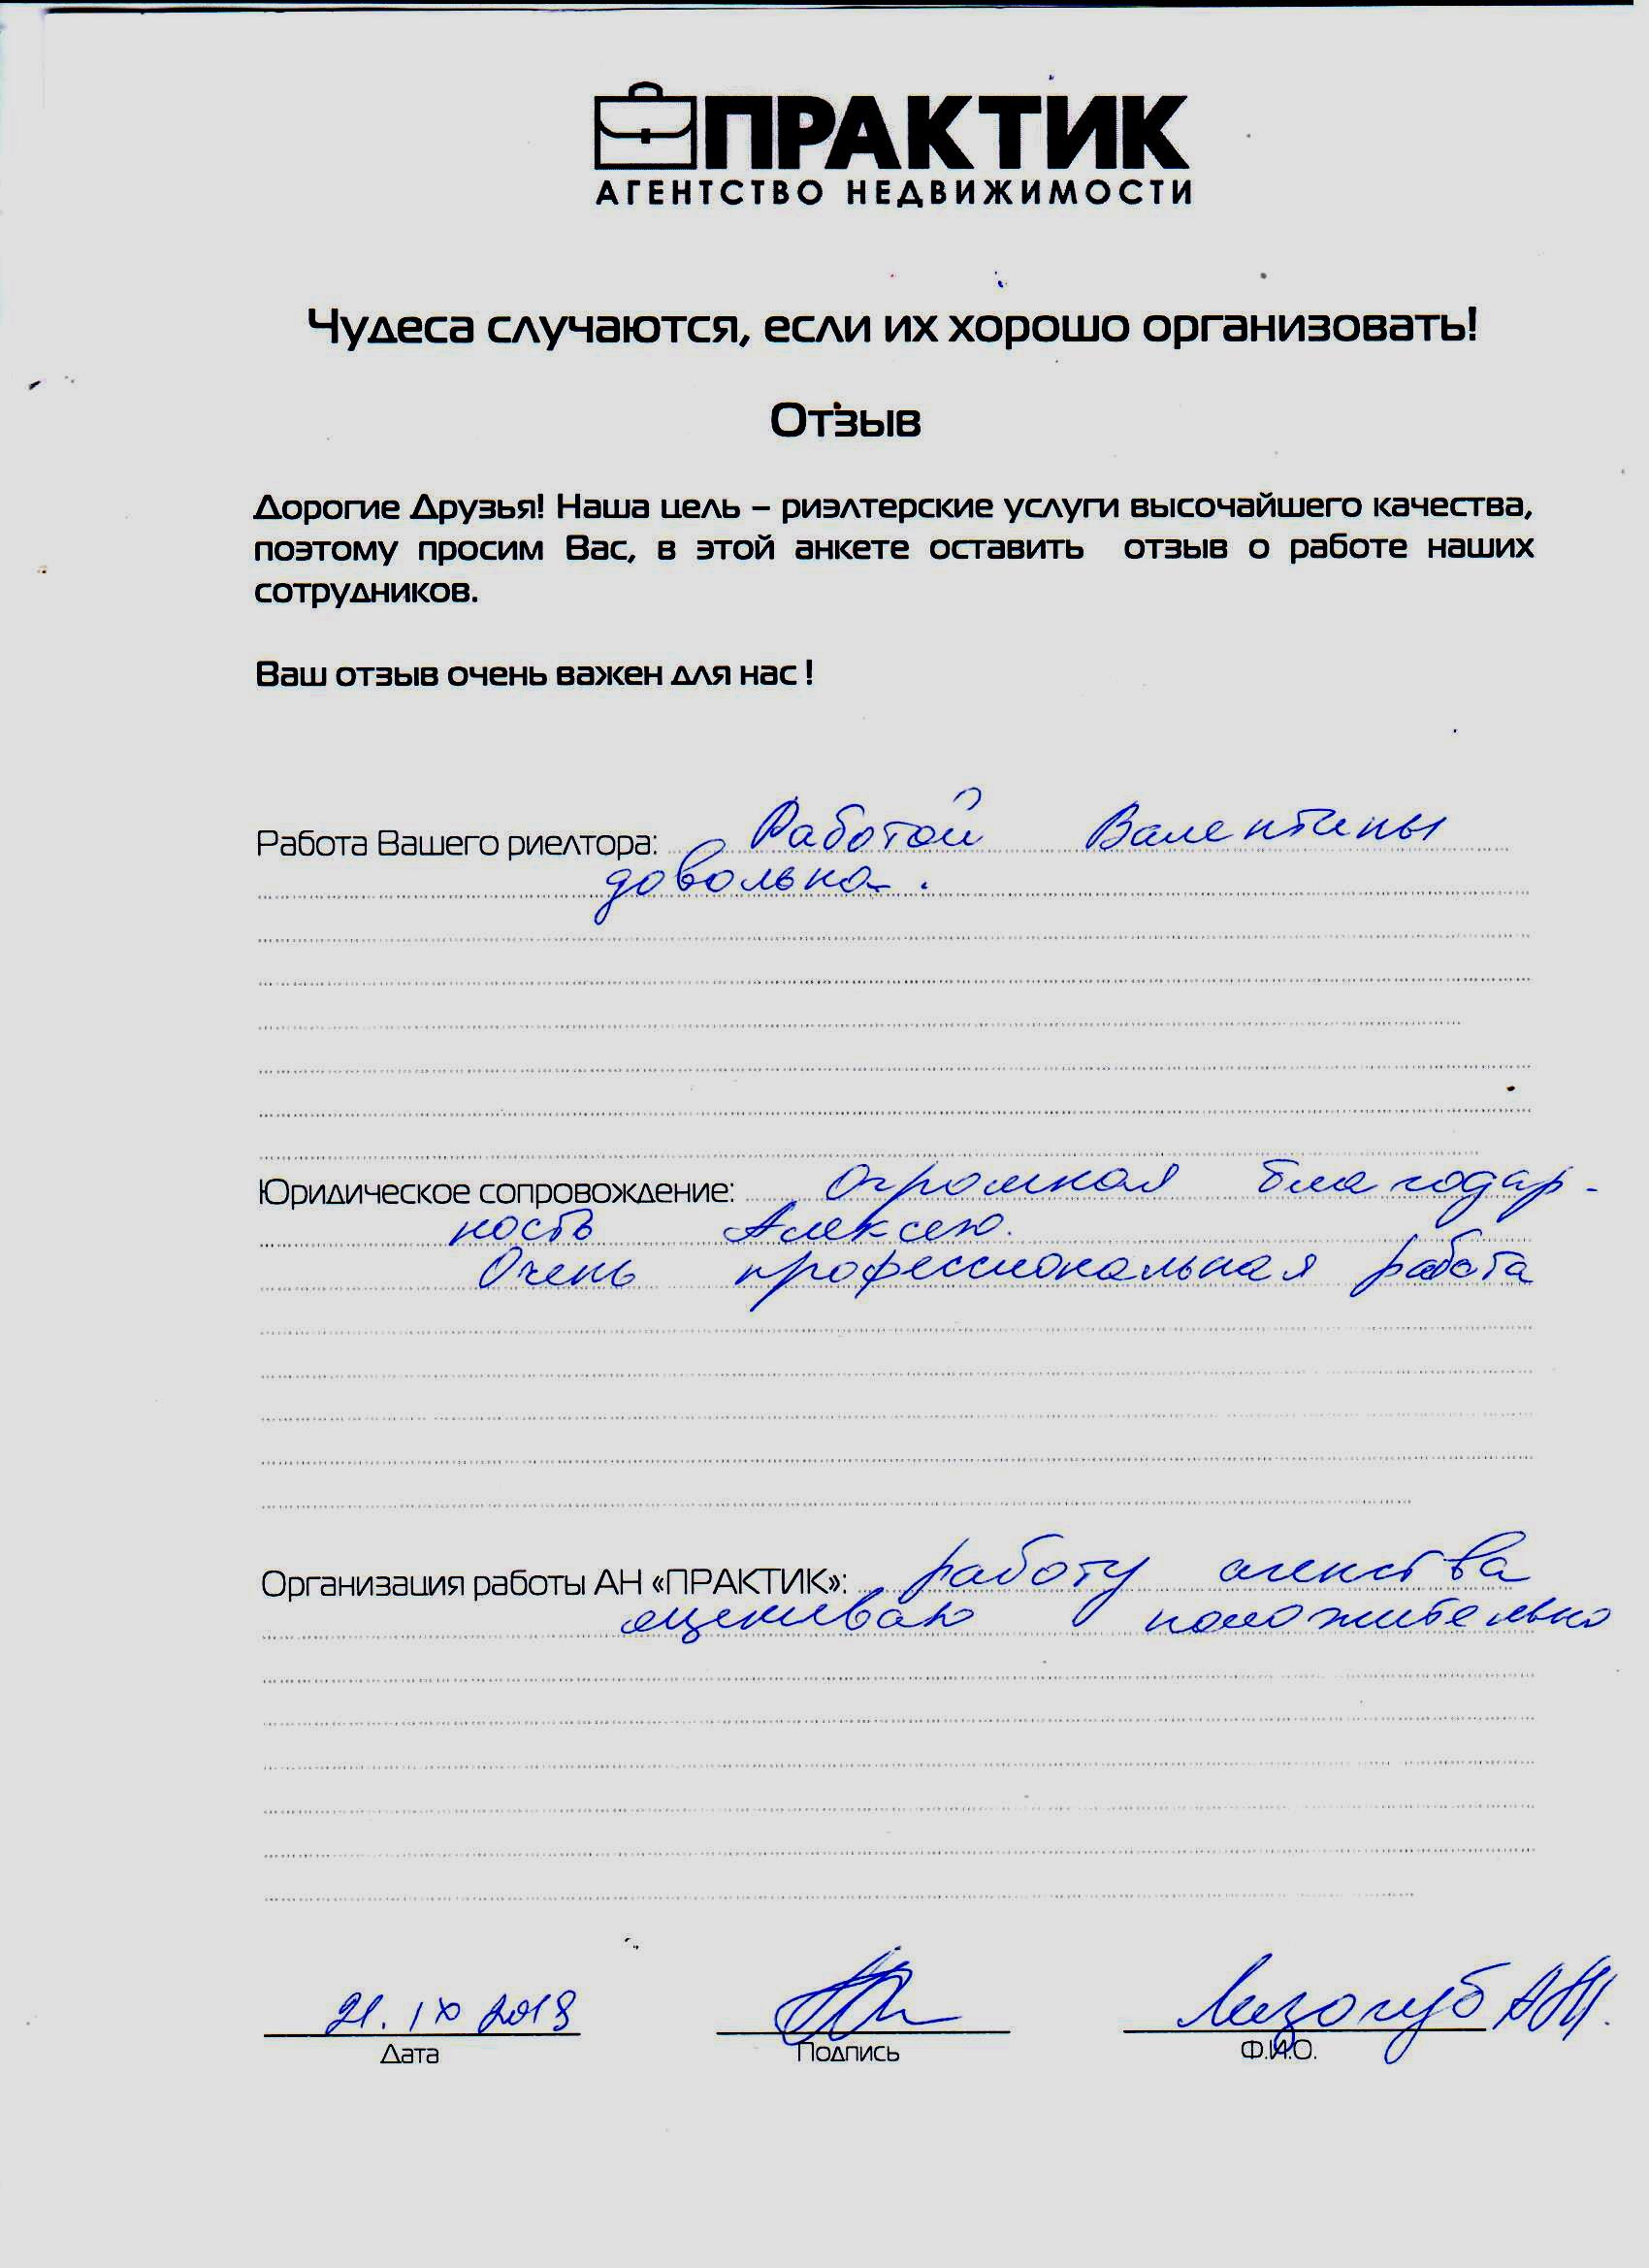 ПРАКТИК
АГЕНТСТВО НЕДВИЖИМОСТИ
Чудеса случаются, если их хорошо организовать!
Отзыв
Дорогие Друзья! Наша цель – риэлтерские услуги высочайшего качества,
поэтому просим Вас, в этой анкете оставить отзыв о работе наших
сотрудников.
Ваш отзыв очень важен для нас !
Работа Вашего риелтора: Работой Валентины
довольна.
Юридическое сопровождение: Огромная благодар-
ность Алексею.
Очень профессиональная работа
Организация работы АН «ПРАКТИК»: работу агенства
оцениваю положительно
21. IX 2019 Лизогуб
Дата Подпись Ф.И.О.